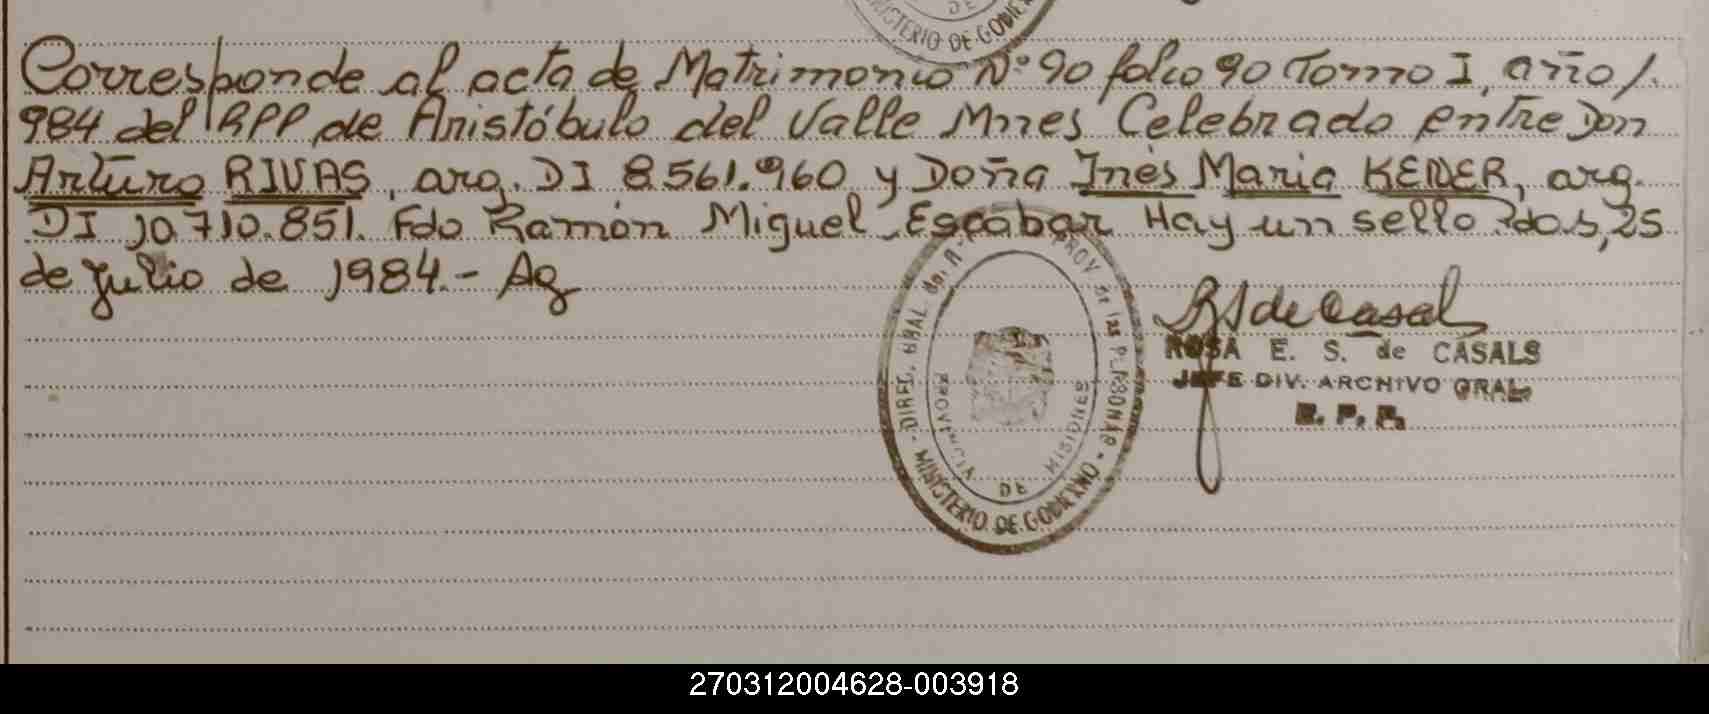 DE
MINISTERIO DE GOBIERNO
Corresponde al acta de Matrimonio Nº 90 folio 90 Tomo I, año 1.
984 del RPP de Aristóbulo del Valle Mnes Celebrado entre Don
Arturo RIVAS, arg. DI 8.561.960 y Doña Inés Maria KENER, arg.
DI 10.710.851. Fdo Ramón Miguel Escobar Hay un sello Pdas, 25
de Julio de 1984.- Ag
RS de Casals
ROSA E. S. de CASALS
JEFE DIV. ARCHIVO GRAL.
R. P. P.
DIREC. GRAL del R. PROV. de las PERSONAS
PROVINCIA DE MISIONES
MINISTERIO DE GOBIERNO
270312004628-003918